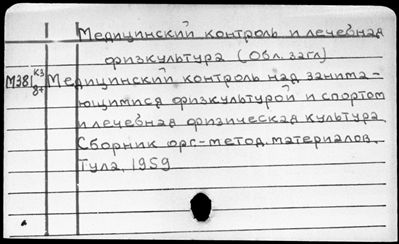 Медицинский контроль и лечебная
физкультура (Обл. загл)
М381 кз Медицинский контроль над занима-
8+ ющимися физкультурой и спортом
и лечебная физическая культура.
Сборник орг-метод. материалов.
Тула, 1959